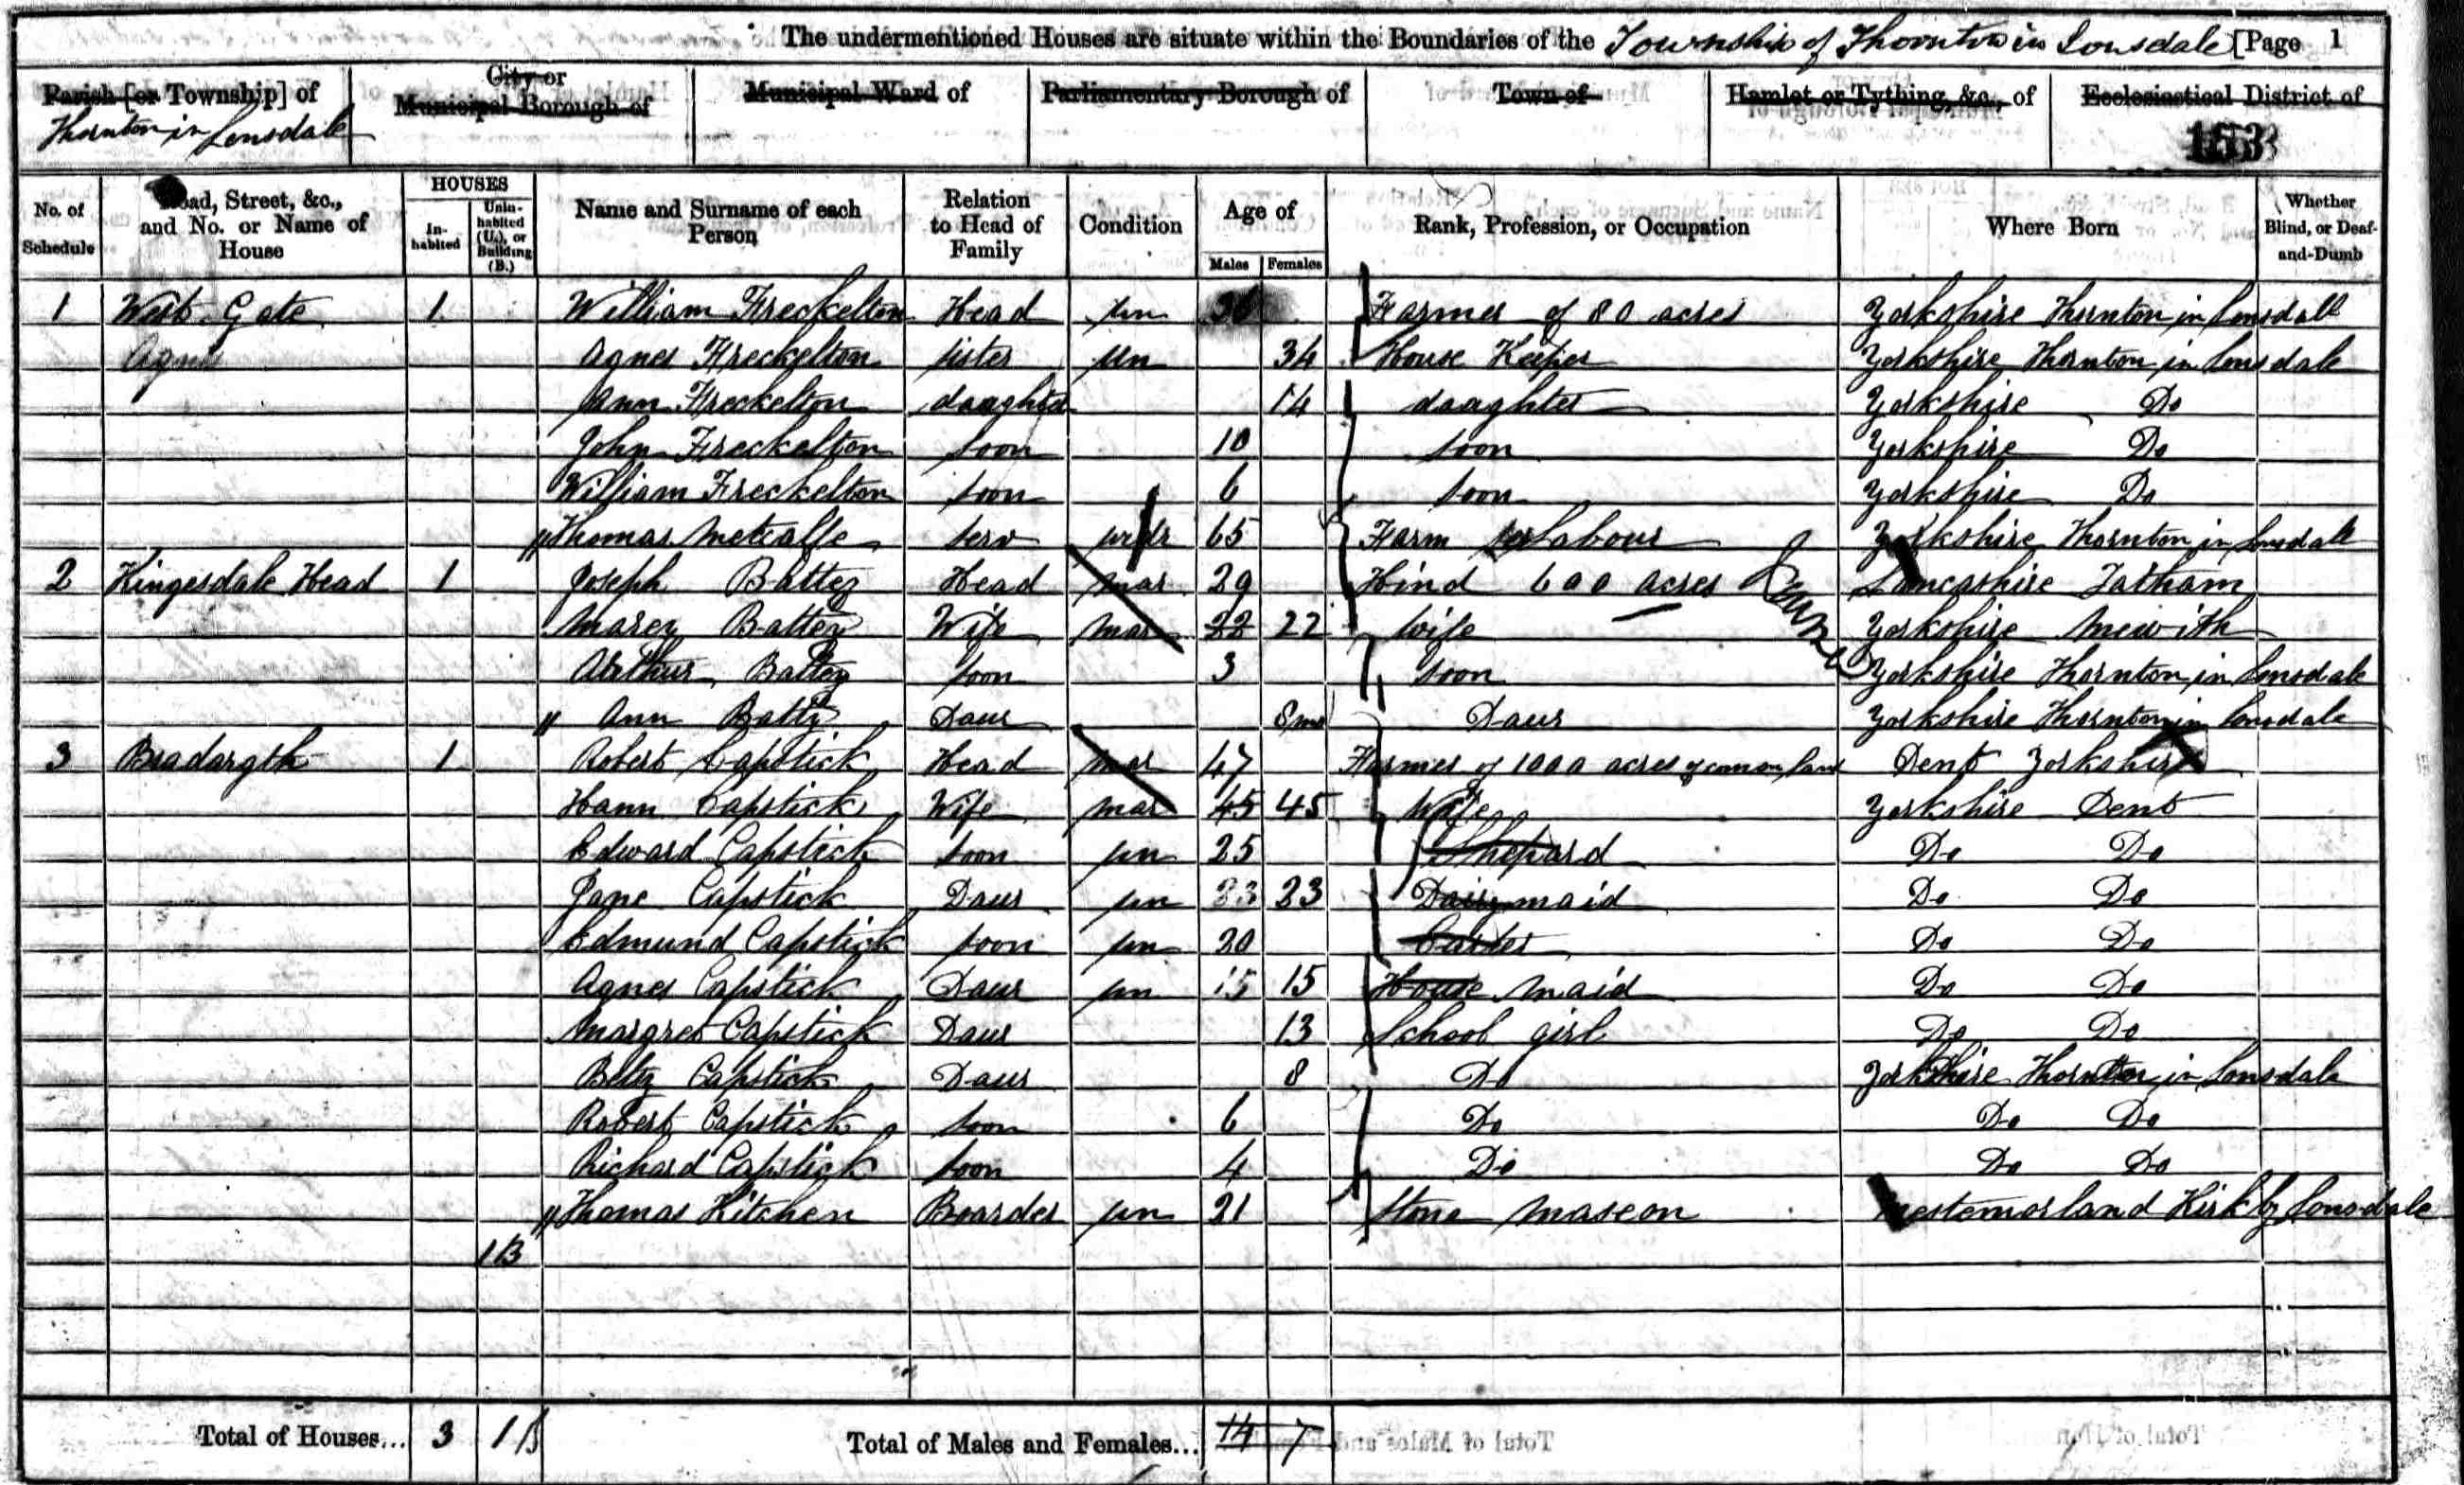 The undermentioned Houses are situate within the Boundaries of the Township of Thornton in Lonsdale [Page 1
Parish [or Township] of Thornton in Lonsdale
City or Municipal Borough of
Municipal Ward of
Parliamentary Borough of
Town of
Hamlet or Tything, &c., of
Ecclesiastical District of
153
No. of Schedule
Road, Street, &c., and No. or Name of House
HOUSES
In-habited
Unin-habited (U.), or Building (B.)
Name and Surname of each Person
Relation to Head of Family
Condition
Age of
Males
Females
Rank, Profession, or Occupation
Where Born
Whether Blind, or Deaf-and-Dumb
1 West Gate 1 William Freckelton Head un Farmer of 80 acres Yorkshire Thornton in Lonsdale
Agnes Agnes Freckelton sister un 34 House Keeper Yorkshire Thornton in Lonsdale
Ann Freckelton daaghter 14 daaghter Yorkshire Do
John Freckelton soon 10 soon Yorkshire Do
William Freckelton soon 6 soon Yorkshire Do
Thomas Metcalfe serv widr 65 Farm Labour Yorkshire Thornton in Lonsdale
2 Kingesdale Head 1 Joseph Battey Head mar 29 Hind 600 acres Lancashire Tatham
Marey Battey Wife mar 22 22 wife Yorkshire Mewith
Arthur Battey soon 3 soon Yorkshire Thornton in Lonsdale
Ann Batty Daur 8 mo Daur Yorkshire Thornton in Lonsdale
3 Bradargth 1 Robert Capstick Head mar 47 Farmer of 1000 acres of comon land Dent Yorkshire
Hann Capstick Wife mar 45 45 Wife Yorkshire Dent
Edward Capstick soon un 25 Shepard Do Do
Jane Capstick Daur un 23 23 Dairy maid Do Do
Edmund Capstick soon un 20 Carter Do Do
Agnes Capstick Daur un 15 15 House Maid Do Do
Margret Capstick Daur 13 School girl Do Do
Betty Capstick Daur 8 Do Yorkshire Thornton in Lonsdale
Robert Capstick soon 6 Do Do Do
Richard Capstick soon 4 Do Do Do
Thomas Kitchen Boarder un 21 Stone Maseon Westemorland Kirkby Lonsdale
1B
Total of Houses... 3 1B Total of Males and Females... 14 7